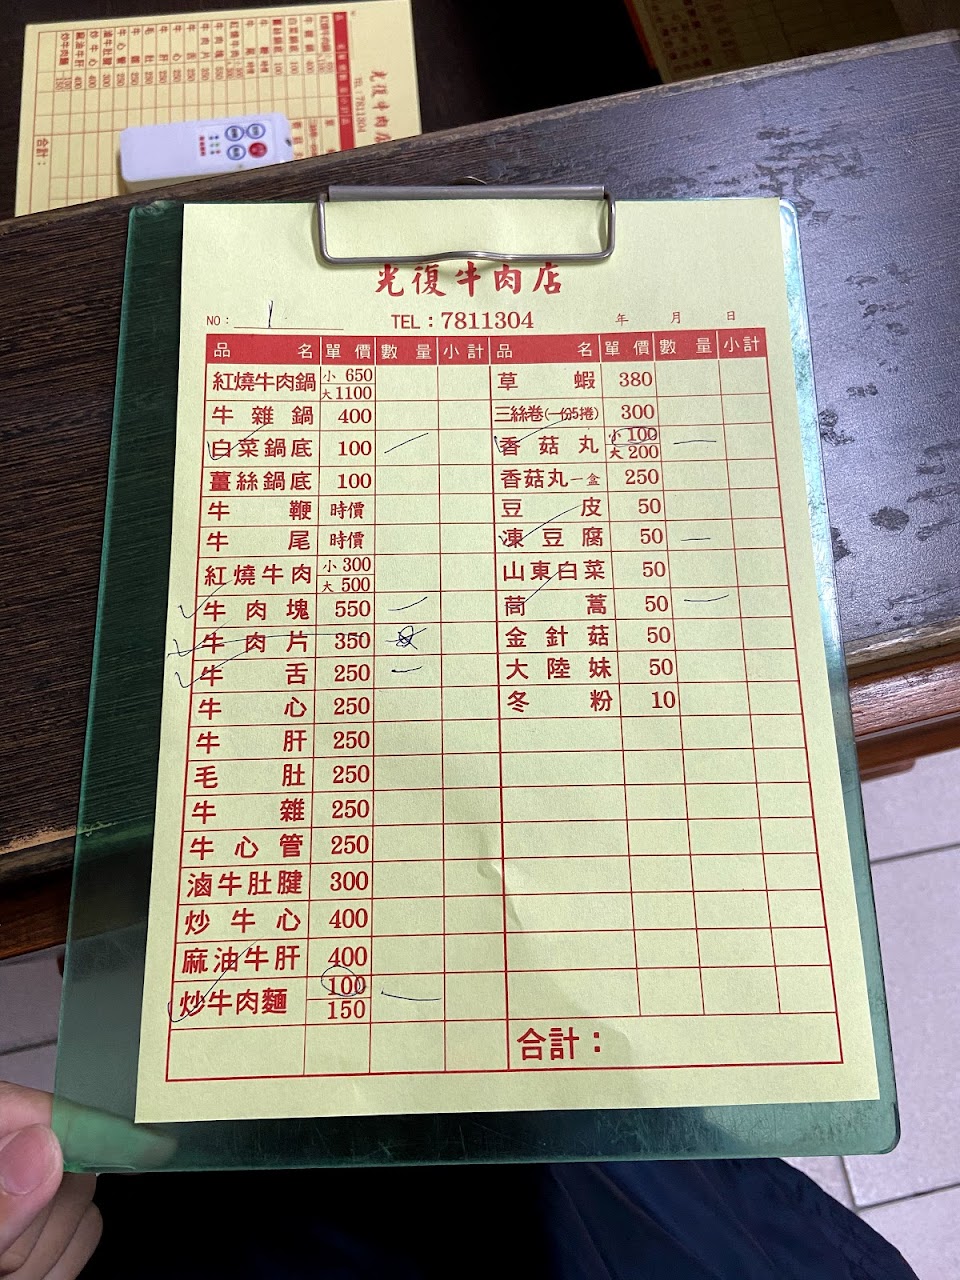 光復牛肉店
NO：1 TEL：7811304 年 月 日
品名 單價 數量 小計 品名 單價 數量 小計
紅燒牛肉鍋 小 650 大 1100 草蝦 380
牛雜鍋 400 三絲卷(一份5捲) 300
白菜鍋底 100 一 香菇丸 小 100 大 200 一
薑絲鍋底 100 香菇丸一盒 250
牛鞭 時價 豆皮 50
牛尾 時價 凍豆腐 50 一
紅燒牛肉 小 300 大 500 山東白菜 50
牛肉塊 550 一 茼蒿 50 一
牛肉片 350 金針菇 50
牛舌 250 一 大陸妹 50
牛心 250 冬粉 10
牛肝 250
毛肚 250
牛雜 250
牛心管 250
滷牛肚腱 300
炒牛心 400
麻油牛肝 400
炒牛肉麵 100 150 一
合計：
光復牛肉店
TEL：7811304
合計：